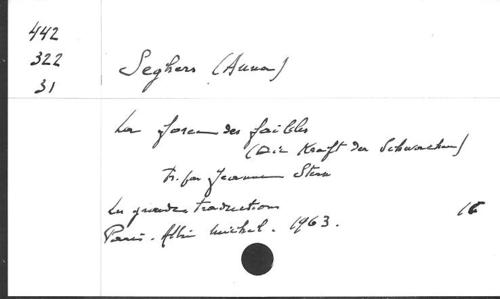 442
322
31
Seghers (Anna)
La force des faibles
(Die Kraft der Schwachen)
Tr. par Jeanne Stern
Les grandes traductions
Paris. Albin Michel. 1963.
16